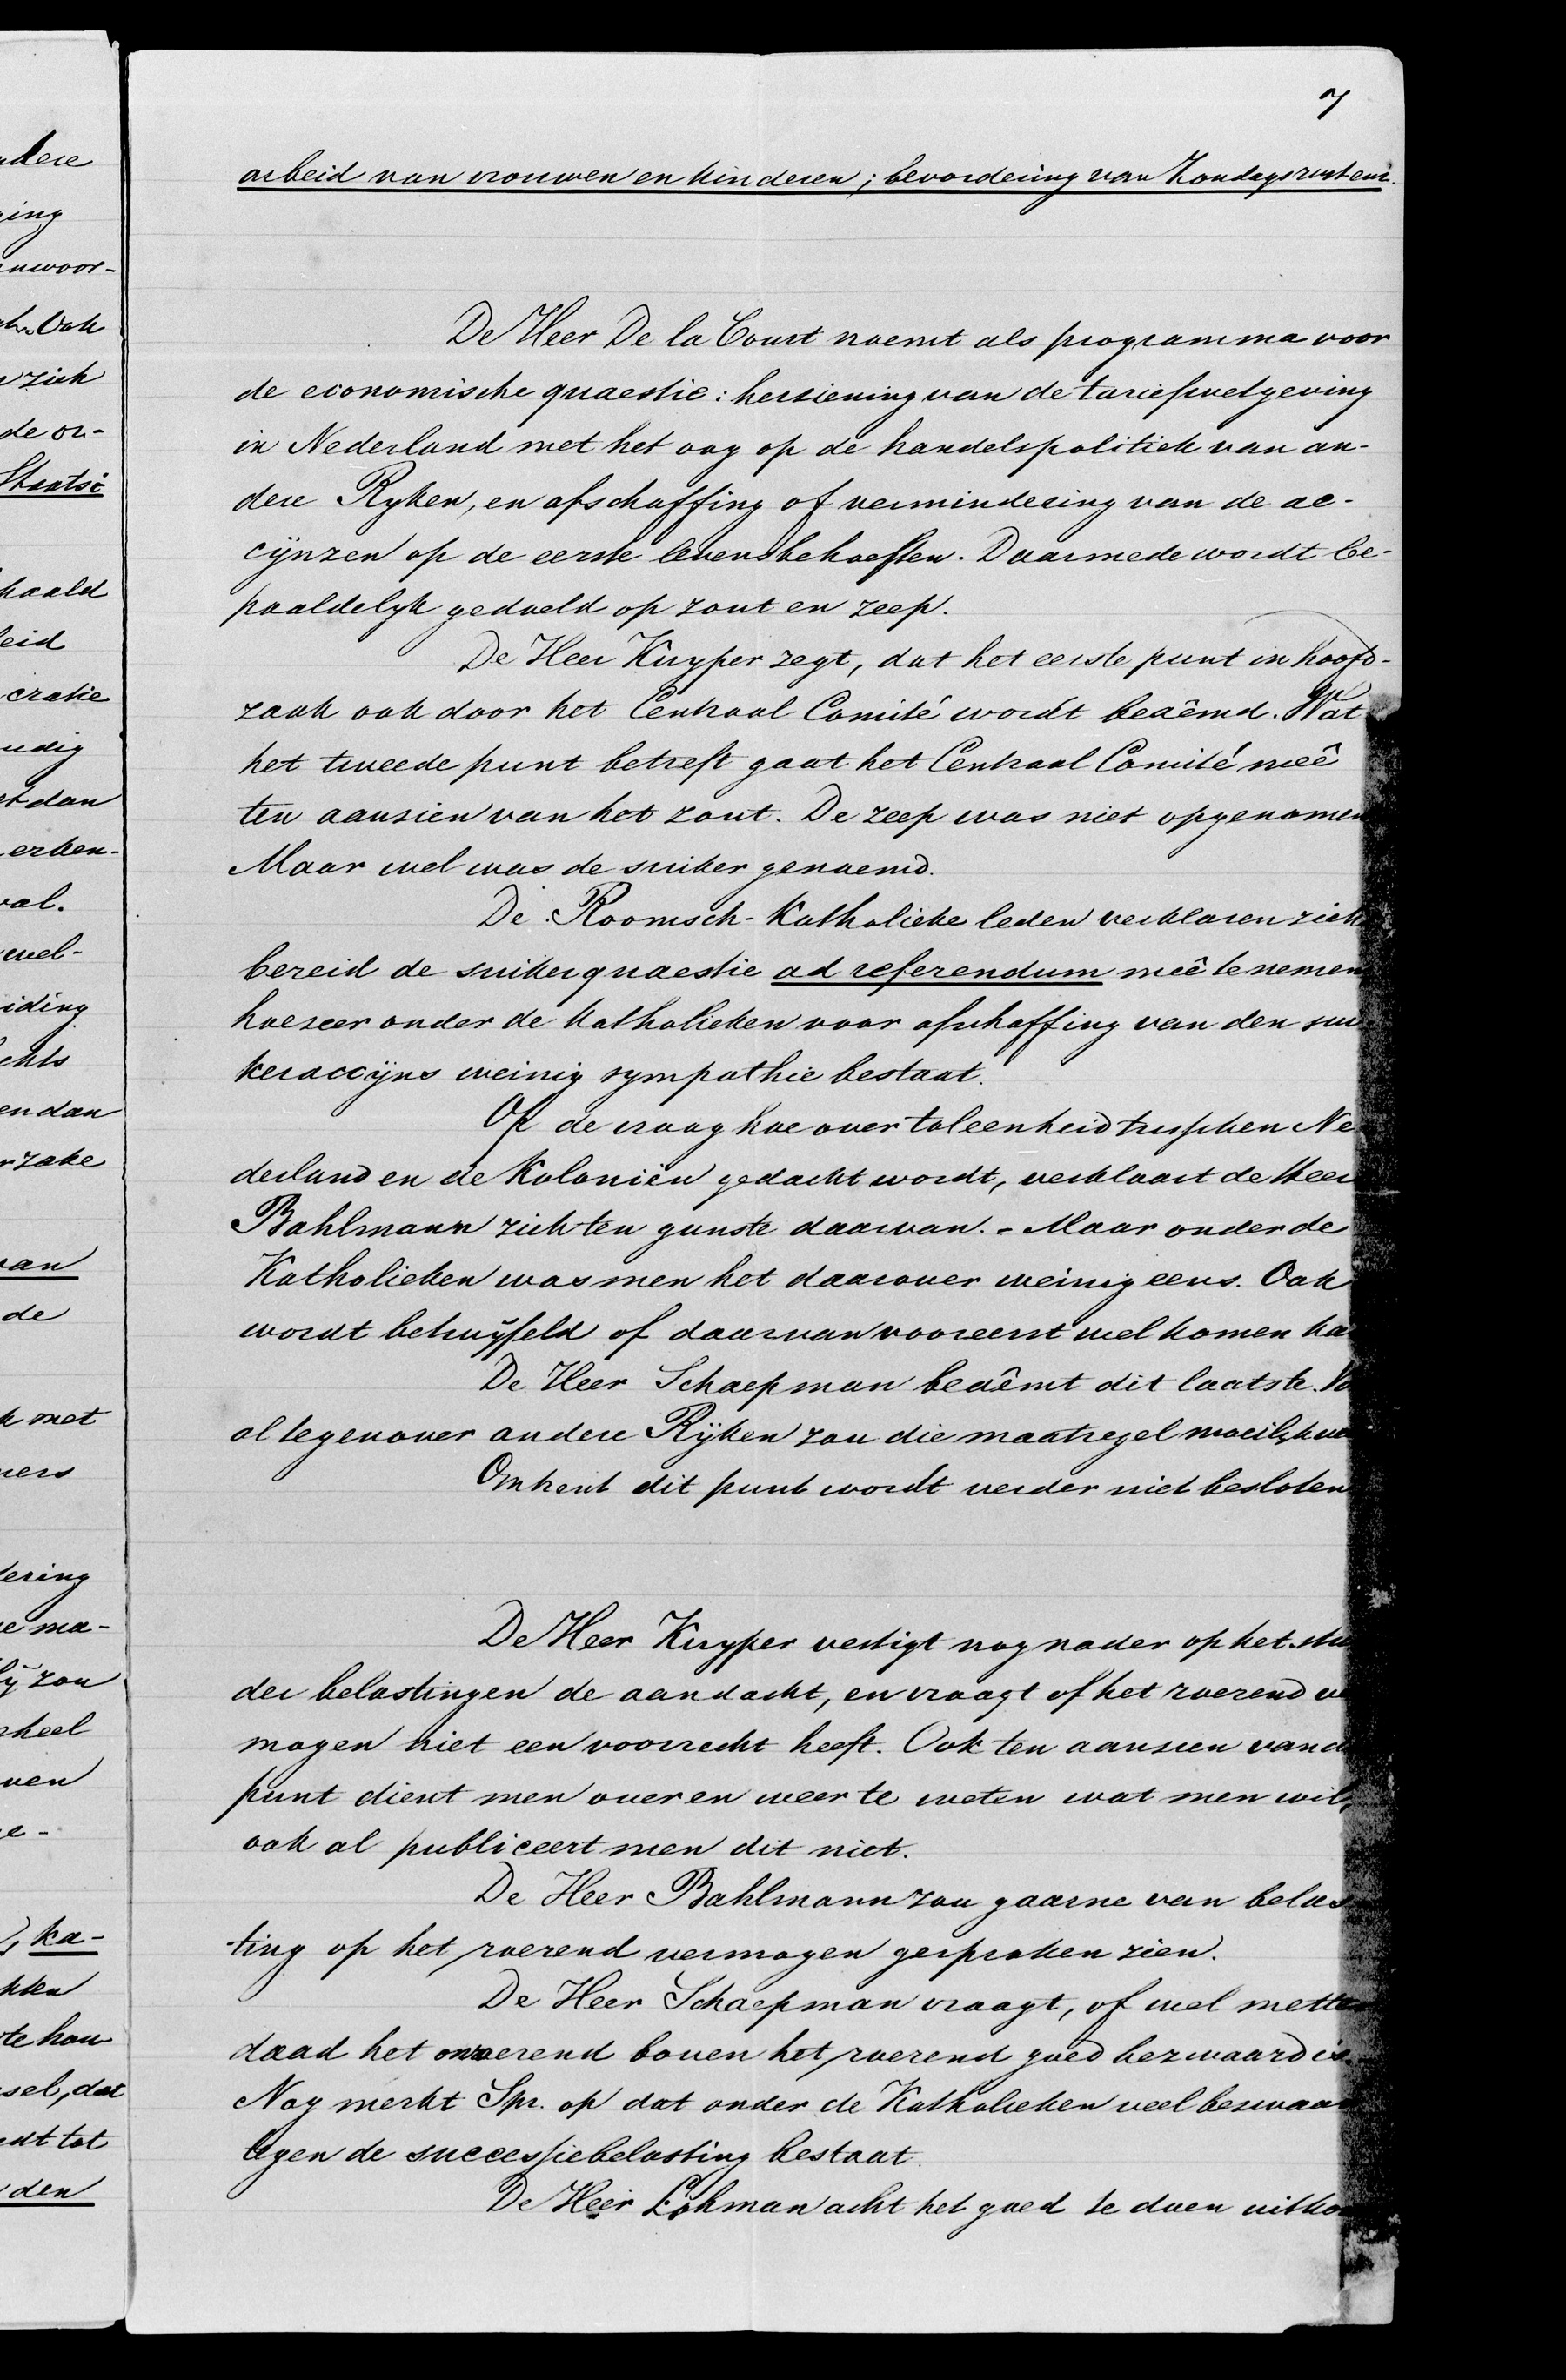 7
arbeid van vrouwen en kinderen; bevordering van Zondagsrust enz.
De Heer De la Court noemt als programma voor
de economische quaestie: herziening van de tariefwetgeving
in Nederland met het oog op de handelspolitiek van an-
dere Ryken, en afschaffing of vermindering van de ac-
cijnzen op de eerste levensbehoeften. Daarmede wordt be-
paaldelyk gedoeld op zout en zeep.
De Heer Kuyper zegt, dat het eerste punt in hoofd-
zaak ook door het Centraal Comité wordt beaêmd. Wat
het tweede punt betreft gaat het Centraal Comité meê
ten aanzien van het zout. De zeep was niet opgenomen
Maar wel was de suiker genoemd.
De Roomsch-Katholieke leden verklaren zich
bereid de suikerquaestie ad referendum meê te nemen
hoezeer onder de Katholieken voor afschaffing van den sui
keraccijns weinig sympathie bestaat.
Op de vraag hoe over toleenheid tusschen Ne
derland en de Koloniën gedacht wordt, verklaart de Heer
Bahlmann zich ten gunste daarvan. - Maar onder de
Katholieken was men het daarover weinig eens. Ook
wordt betwijfeld of daarvan vooreerst wel komen ka
De Heer Schaepman beaêmt dit laatste. Vo
al tegenover andere Rijken zou die maatregel moeilyk we
Omtrent dit punt wordt verder niet besloten
De Heer Kuyper vestigt nog nader op het stu
der belastingen de aandacht, en vraagt of het roerend ve
mogen niet een voorrecht heeft. Ook ten aanzien van di
punt dient men over en weer te weten wat men wil,
ook al publiceert men dit niet.
De Heer Bahlmann zou gaarne van belas
ting op het roerend vermogen gesproken zien.
De Heer Schaepman vraagt, of wel metter
daad het onroerend boven het roerend goed bezwaard is.
Nog merkt Spr. op dat onder de Katholieken veel bezwaar
tegen de successiebelasting bestaat.
De Heer Lohman acht het goed te doen uitko